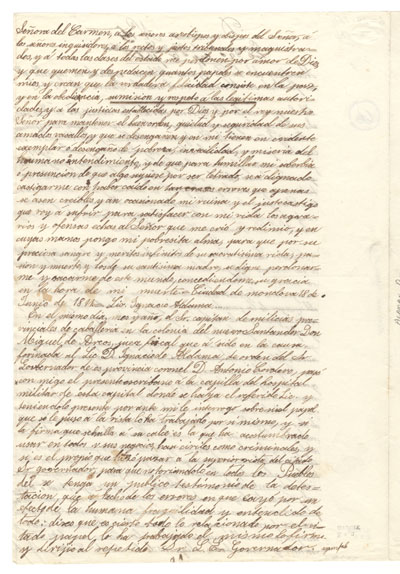 Señora del Carmen, a los señores arzobispos y obispos del Señor, á
los señores inquisidores, á los retos y justos ordenados y magistra-
dos, y á todas las clases del estado me perdonen por amor de Dios,
y que quemen y despedacen quantos papeles se encuentren
mios y crean que la verdadera felicidad consiste en la paz,
y en la obediencia, sumision y respeto á las legitimas autori-
dades y á las justicias establecidas por Dios y por el rey nuestro
Señor para mantener el buen orden, quietud y seguridad de sus
amados vasallos, y que se desengañen y en mi tienen un retrato
exemplar o desengaño de pobreza, inutilidad, y miseria del
humano entendimiento, y de que para humillar mi soberbia
o presuncion de que algo supiese por ser letrado se ha dignado
castigarme con haber caido en tan crasos errores que apenas
se hacen creibles y an ocasionado mi ruina y el justo castigo
que voy a sufrir para satisfacer con mi vida los agra-
vios y ofensas echas al Señor que me crió y redimió, y en
cuyas manos pongo mi pobrecita alma, para que por su
preciosa sangre y meritos infinitos de su sacratisima vida, pa-
sion y muerte y los de su santisima madre, se digne perdonar-
me y sacarme de este mundo, concediendome su gracia
en la hora de mi muerte. Ciudad de monclova 18 de
Junio de 1811. Lic. Ignacio Aldama.
En el mismo dia, mes y año, el Sr. capitan de milicias pro-
vinciales de caballeria en la colonia del nuevo Santander Don
Miguel de Arcos, juez fiscal que á sido en la causa
formada al Lic. D. Ignacio de Aldama de orden del Sr.
Governador de es provincia coronel D. Antonio Cordero, pasó
con migo el presente escribano a la capilla del hospital
militar de esta capital donde se halla el referido Lic. y
teniendolo presente por ante mi le interrogó sobre si el papel
que se le puso a la vista lo ha trabajado por si mismo, y si
la firma que se halla a su calce es la que ha acostumbrado
usar en todos sus negocios, tan civiles como criminales, y
si es el propio que hizo pasar a la superior vista del expresado
Sr. governador, para que notoriandolo en todos los Pueblos
del se tenga un publico testimonio de la detes-
tacion que á tenido los errores en que cayó por un
efecto de la humana fragilidad y enterado de
todo: dixo que es cierto todo lo relacionado por el ci-
tado papel, lo ha trabajado él mismo lo firmo
y dirijio al repetido Sr. Governador: exemplo